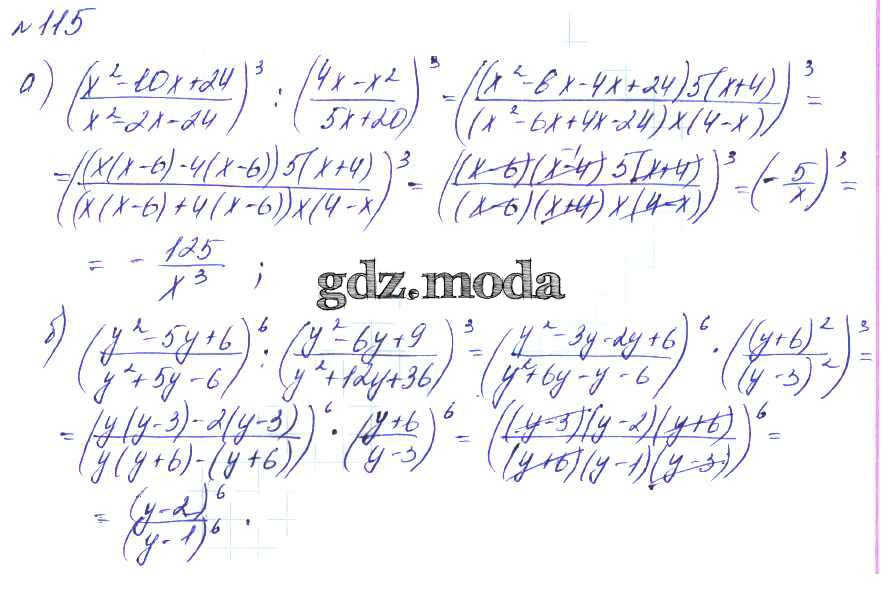 №115
а) ((x²-10x+24)/(x²-2x-24))³ : ((4x-x²)/(5x+20))³ = (((x²-6x-4x+24)5(x+4))/((x²-6x+4x-24)x(4-x)))³ =
= (((x(x-6)-4(x-6))5(x+4))/((x(x-6)+4(x-6))x(4-x))³ = (((x-6)(x-4)⁻¹5(x+4))/((x-6)(x+4)x(4-x)))³ = (-5/x)³ =
= -125/x³ ;
gdz.moda
б) ((y²-5y+6)/(y²+5y-6))⁶ : ((y²-6y+9)/(y²+12y+36))³ = ((y²-3y-2y+6)/(y²+6y-y-6))⁶ · ((y+6)²/(y-3)²)³ =
= ((y(y-3)-2(y-3))/(y(y+6)-(y+6)))⁶ · ((y+6)/(y-3))⁶ = (((y-3)(y-2)(y+6))/((y+6)(y-1)(y-3)))⁶ =
= (y-2)⁶/(y-1)⁶ .